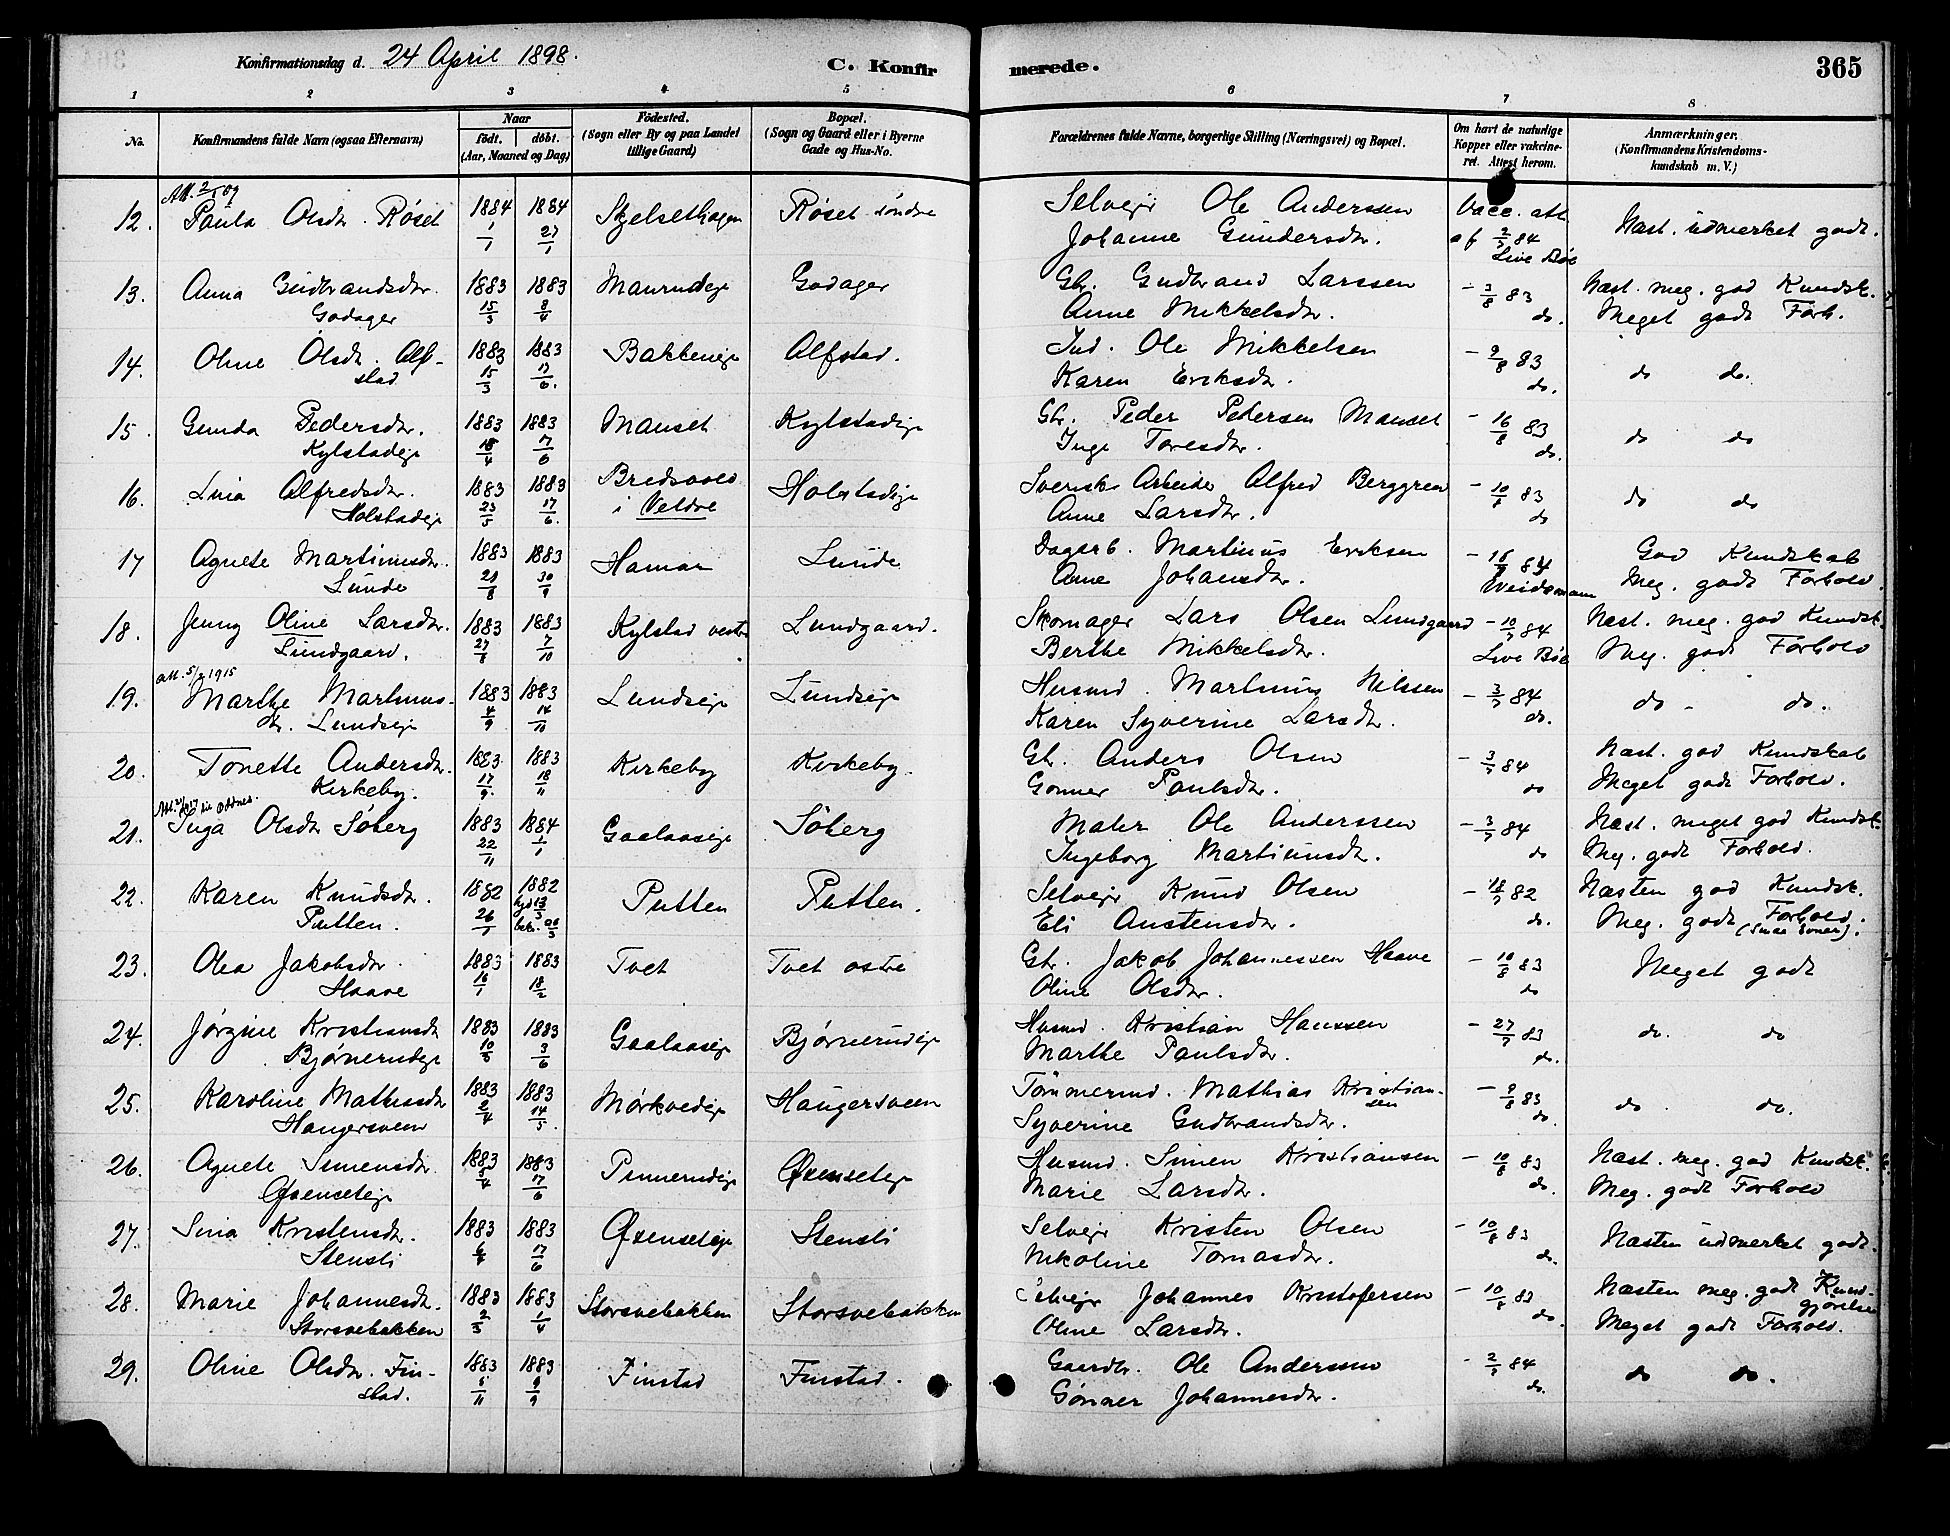 Konfirmationsdag d. 24 April 1898. C. Konfirmerede. 365
1 2 3 4 5 6 7 8
No.
Konfirmandens fulde Navn (ogsaa Efternavn)
Naar
födt. döbt.
(Aar, Maaned og Dag)
Födested.
(Sogn eller By og paa Landet
tillige Gaard)
Bopæl.
(Sogn og Gaard eller i Byerne
Gade og Hus-No.
Forældrenes fulde Navne, borgerlige Stilling (Næringsvei) og Bopæl.
Om havt de naturlige
Kopper eller vakcine-
ret. Attest herom.
Anmærkninger.
(Konfirmandens Kristendoms-
kundskab m. V.)
12. Paula Olsdtr. Røset 1884 1/1 1884 27/1 Skjelsethagen Røset søndre
Selvejr Ole Anderssen
Johanne Gundersdtr.
Vacc. att.
af 2/7 84
Live Bøe
Næst. udmerket godt.
13. Anna Gudbrandsdtr. Godager 1883 15/3 1883 8/4 Maurudeje Godager
Gbr. Gudbrand Larssen
Anne Mikkelsdtr.
- 3/8 83 do.
Næst. meg. god Kundsk.
Meget godt Forh.
14. Oline Olsdtr. Alfstad 1883 15/3 1883 17/6. Bakkeneje Alfstad.
Ind. Ole Mikkelsen
Karen Eriksdtr.
- 9/8 83 do.
do do.
15. Gunda Pedersdtr. Kylstadeje 1883 18/4 1883 17/6 Manset Kylstadeje
Gbr. Peder Pedersen Manset
Inge Toresdtr.
- 16/8 83 do.
do do
16. Lina Alfredsdtr. Holstadeje 1883 23/5 1883 17/6. Bredsvold i Veldre Holstadeje
Svensk Arbeider Alfred Berggren
Anne Larsdtr.
- 10/8 83 do
do do
17 Agnete Martinusdtr. Lunde 1883 21/8 1883 30/9 Hamar Lunde
Dagarb. Martinus Eriksen
Anne Johansdtr.
84 Weidemann
God Kundskab
Meg. godt Forhold.
18. Jenny Oline Larsdtr. Lundgaard. 1883 27/8 1883 7/10 Kylstad vestre Lundgaard.
Skomager Lars Olsen Lundgaard
Berthe Mikkelsdtr.
- 10/7 84
Live Bøe
Næst. meg. god Kundsk.
Meg. godt Forhold
Att. 5/2 1915
19. Marthe Martinusdtr. Lundseje 1883 4/9 1883 14/10 Lundseje Lundseje
Husmd. Martinus Nilssen
Karen Syverine Larsdtr.
- 3/7 84 do.
do - do.
20. Tonette Andersdtr. Kirkeby. 1883 17/9. 1883 18/11 Kirkeby Kirkeby.
Gbr. Anders Olsen
Gonner Paulsdtr.
- 3/7 84 do
Næst. god Kundskab
Meget godt Forhold.
21. Inga Olsdtr Søberg 1883 22/11 1884 1/1 Gaalaaseje Søberg
Maler Ole Anderssen
Ingeborg Martinusdtr.
- 3/7 84 do
Næst. meget god Kundsk.
Meg. godt Forhold.
22. Karen Knudsdtr. Putten. 1882 26/1 1882 hjd 13/3 Putten Putten.
Selveje Knud Olsen
Eli Austensdtr.
- 18/7 82 do.
Næsten god Kundsk.
Meg. godt Forhold.
(Smaa Evner).
23. Olea Jakobsdtr. Haave 1883 16/1 1883 18/2 Tvet Tvet østre
Gbr. Jakob Johannessen Haave
Oline Olsdtr.
- 10/8 83 do
Meget godt
24. Jørgine Kristiansdtr Bjørnerudeje 1883 1883 3/6 Gaalaaseje Bjørnerudeje
Husmd. Kristian Hanssen
Marthe Paulsdtr.
- 27/7 83 do.
do. do
25. Karoline Mathisdtr Haugersveen 1883 2/4 1883 14/5. Mørkvedeje Haugersveen
Tömmermd. Mathias Kristiansen
Syverine Gudbrandsdtr.
- 9/8 83 do.
do. do.
26. Agnete Simensdtr. Øxenseteje 1883 5/4 1883 17/6 Pinnerudeje Øxenseteje
Husmd. Simen Kristiansen
Marie Larsdtr.
- 10/8 83 do.
Næst. meg. god Kundsk.
Meg. godt Forhold
27. Sina Kristensdtr. Stensli 1883 1883 17/6 Øxenseteje Stensli
Selvejr Kristen Olsen
Nikoline Tomasdtr.
- 10/8 83 do.
Næsten udmerket godt.
28. Marie Johannesdtr. Storsvebakken 1883 2/3 1883 1/4 Storsvebakken Storsvebakken
Selvejr Johannes Kristofersen
Oline Larsdtr.
- 10/8 83 do.
Næsten meg. godt Kundgjørelse
Meget godt Forhold.
29. Oline Olsdtr. Finstad. 1883 1883 9/9 Finstad Finstad.
Gaardbr. Ole Anderssen
Gønner Johannesdtr.
- 2/7 84 do.
do do.